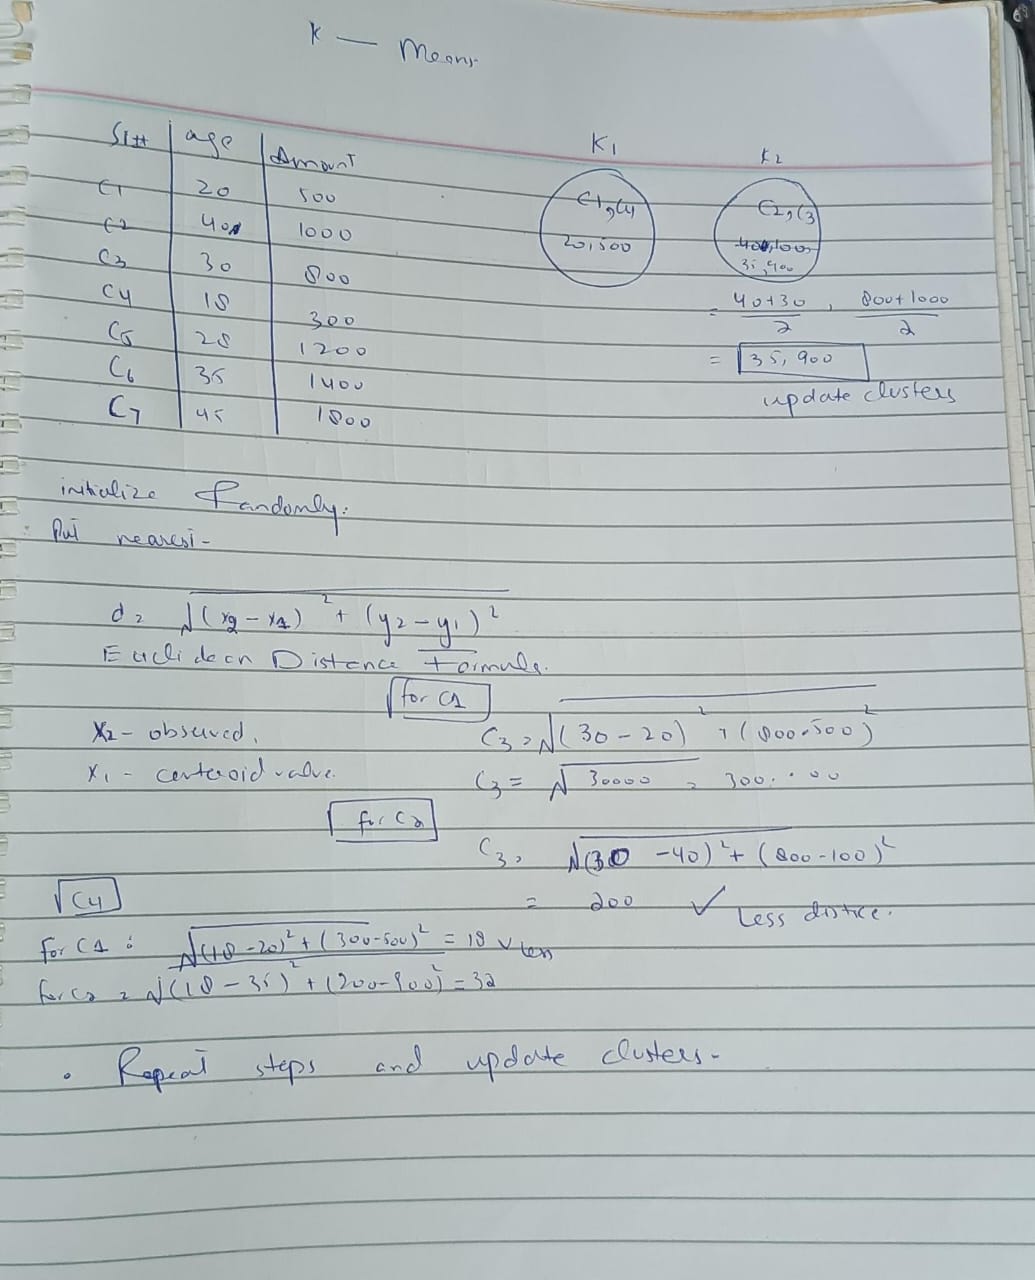 K — Means
Sl# age Amount
C1 20 500
C2 40 1000
C3 30 800
C4 18 300
C5 28 1200
C6 35 1400
C7 45 1800
K1
C1, C4
20,500
K2
C2, C3
35,900
= 40+30 / 2 , 800+1000 / 2
= 35, 900
update clusters
initialize Randomly.
Put nearest-
d = √(x2 - x1)² + (y2 - y1)²
Euclidean Distance Formula.
for C1
X2 - observed.
C3 = √(30 - 20)² + (800-500)²
X1 - centeroid value.
C3 = √30000 = 300.
for C2
C3, √(30 - 40)² + (800-100)²
C4
= 200 ✓ Less distnce.
For C1 : √(18-20)² + (300-500)² = 18 ✓ less
For C2 = √(18-35)² + (200-900)² = 32
• Repeat steps and update clusters-